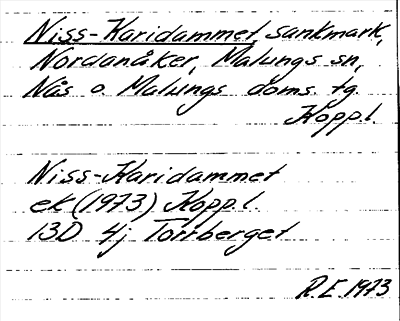 Niss-Karidammet, sankmark,
Nordanåker, Malungs sn,
Nås o. Malungs doms. tg.
Kopp.l.
Niss-Karidammet
ek (1973) Kopp.l.
13D 4j Torrberget
R.E. 1973